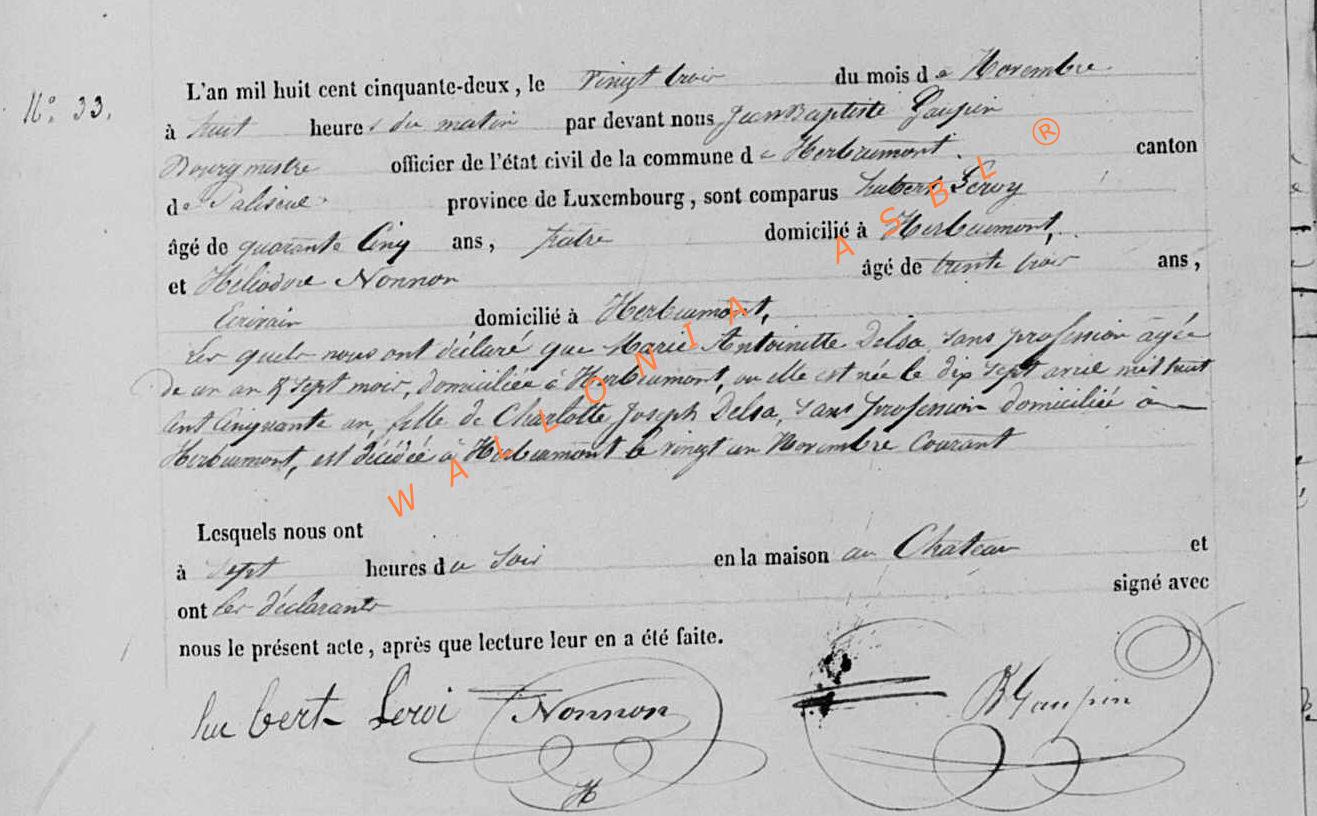 N° 33.
L'an mil huit cent cinquante-deux, le vingt trois du mois de Novembre
à huit heures du matin par devant nous Jean Baptiste Gaupin
Bourgmestre officier de l'état civil de la commune de Herbeumont. canton
de Paliseul province de Luxembourg, sont comparus hubert Leroy
âgé de quarante Cinq ans, patre domicilié à Herbeumont,
et Héliodore Nonnon âgé de trente trois ans,
Ecrivain domicilié à Herbeumont,
Les quels nous ont déclaré que Marie Antoinette Delsa, sans profession âgée
de un an & sept mois, domiciliée à Herbeumont, ou elle est née le dix sept avril mil huit
cent Cinquante un, fille de Charlotte Joseph Delsa, sans profession domiciliée à
Herbeumont, est décédée à Herbeumont le vingt un Novembre Courant
Lesquels nous ont
à sept heures du Soir en la maison au Chateau et
ont les déclarants signé avec
nous le présent acte, après que lecture leur en a été faite.
hubert Leroi Nonnon JBGaupin
H
WALLONIA ASBL ®